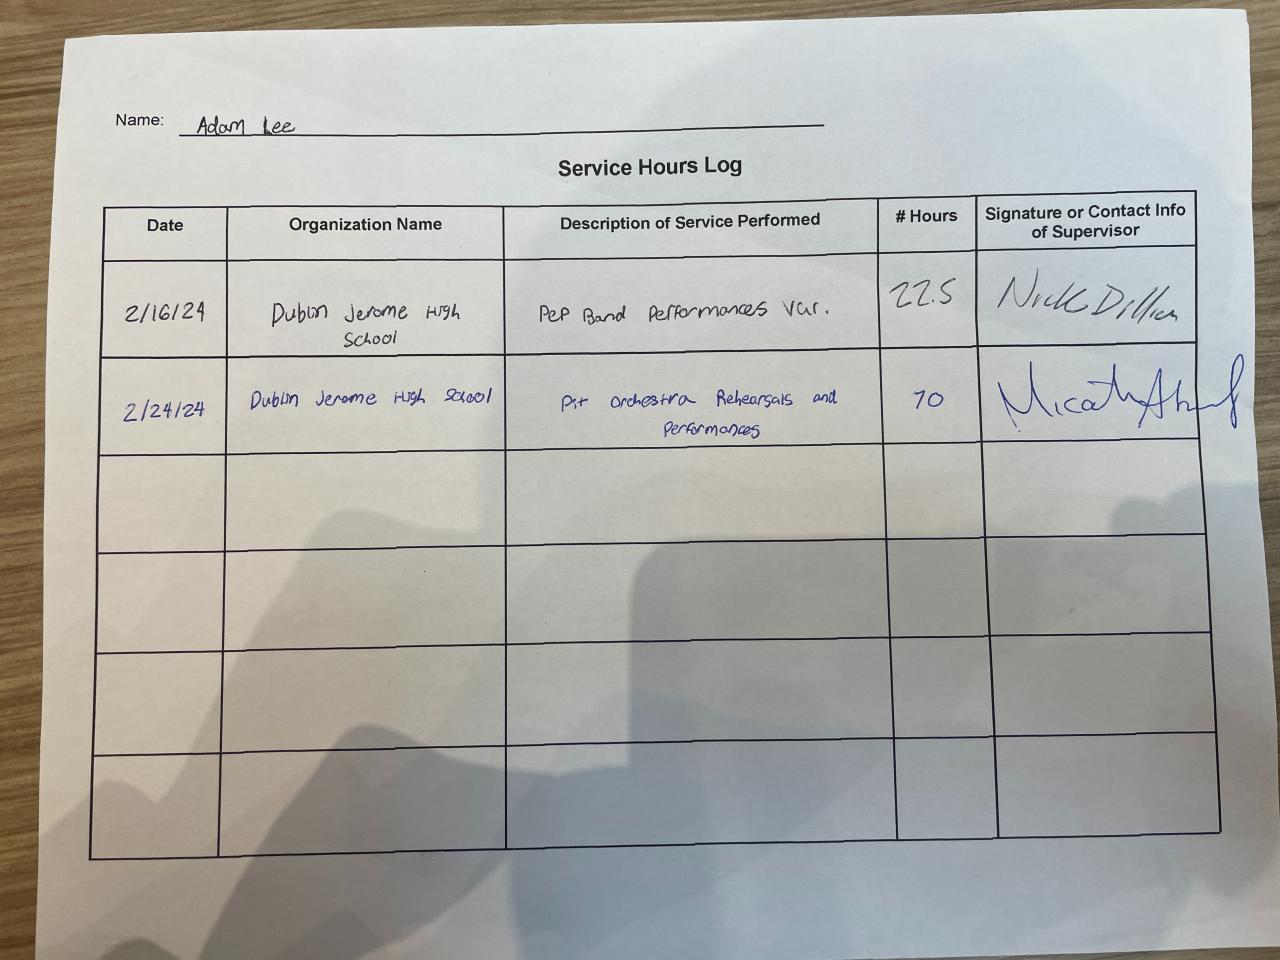 Name: Adam Lee
Service Hours Log
Date
Organization Name
Description of Service Performed
# Hours
Signature or Contact Info
of Supervisor
2/16/24
Dublin Jerome High
School
Pep Band Performances Var.
22.5
Nick Dillon
2/24/24
Dublin Jerome High School
Pit Orchestra Rehearsals and
Performances
70
Micah